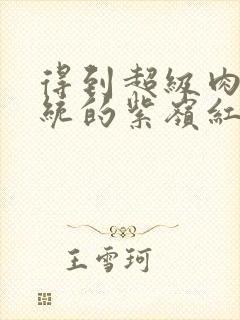 得到超級肉
統的紫嶺紅
王雪珂